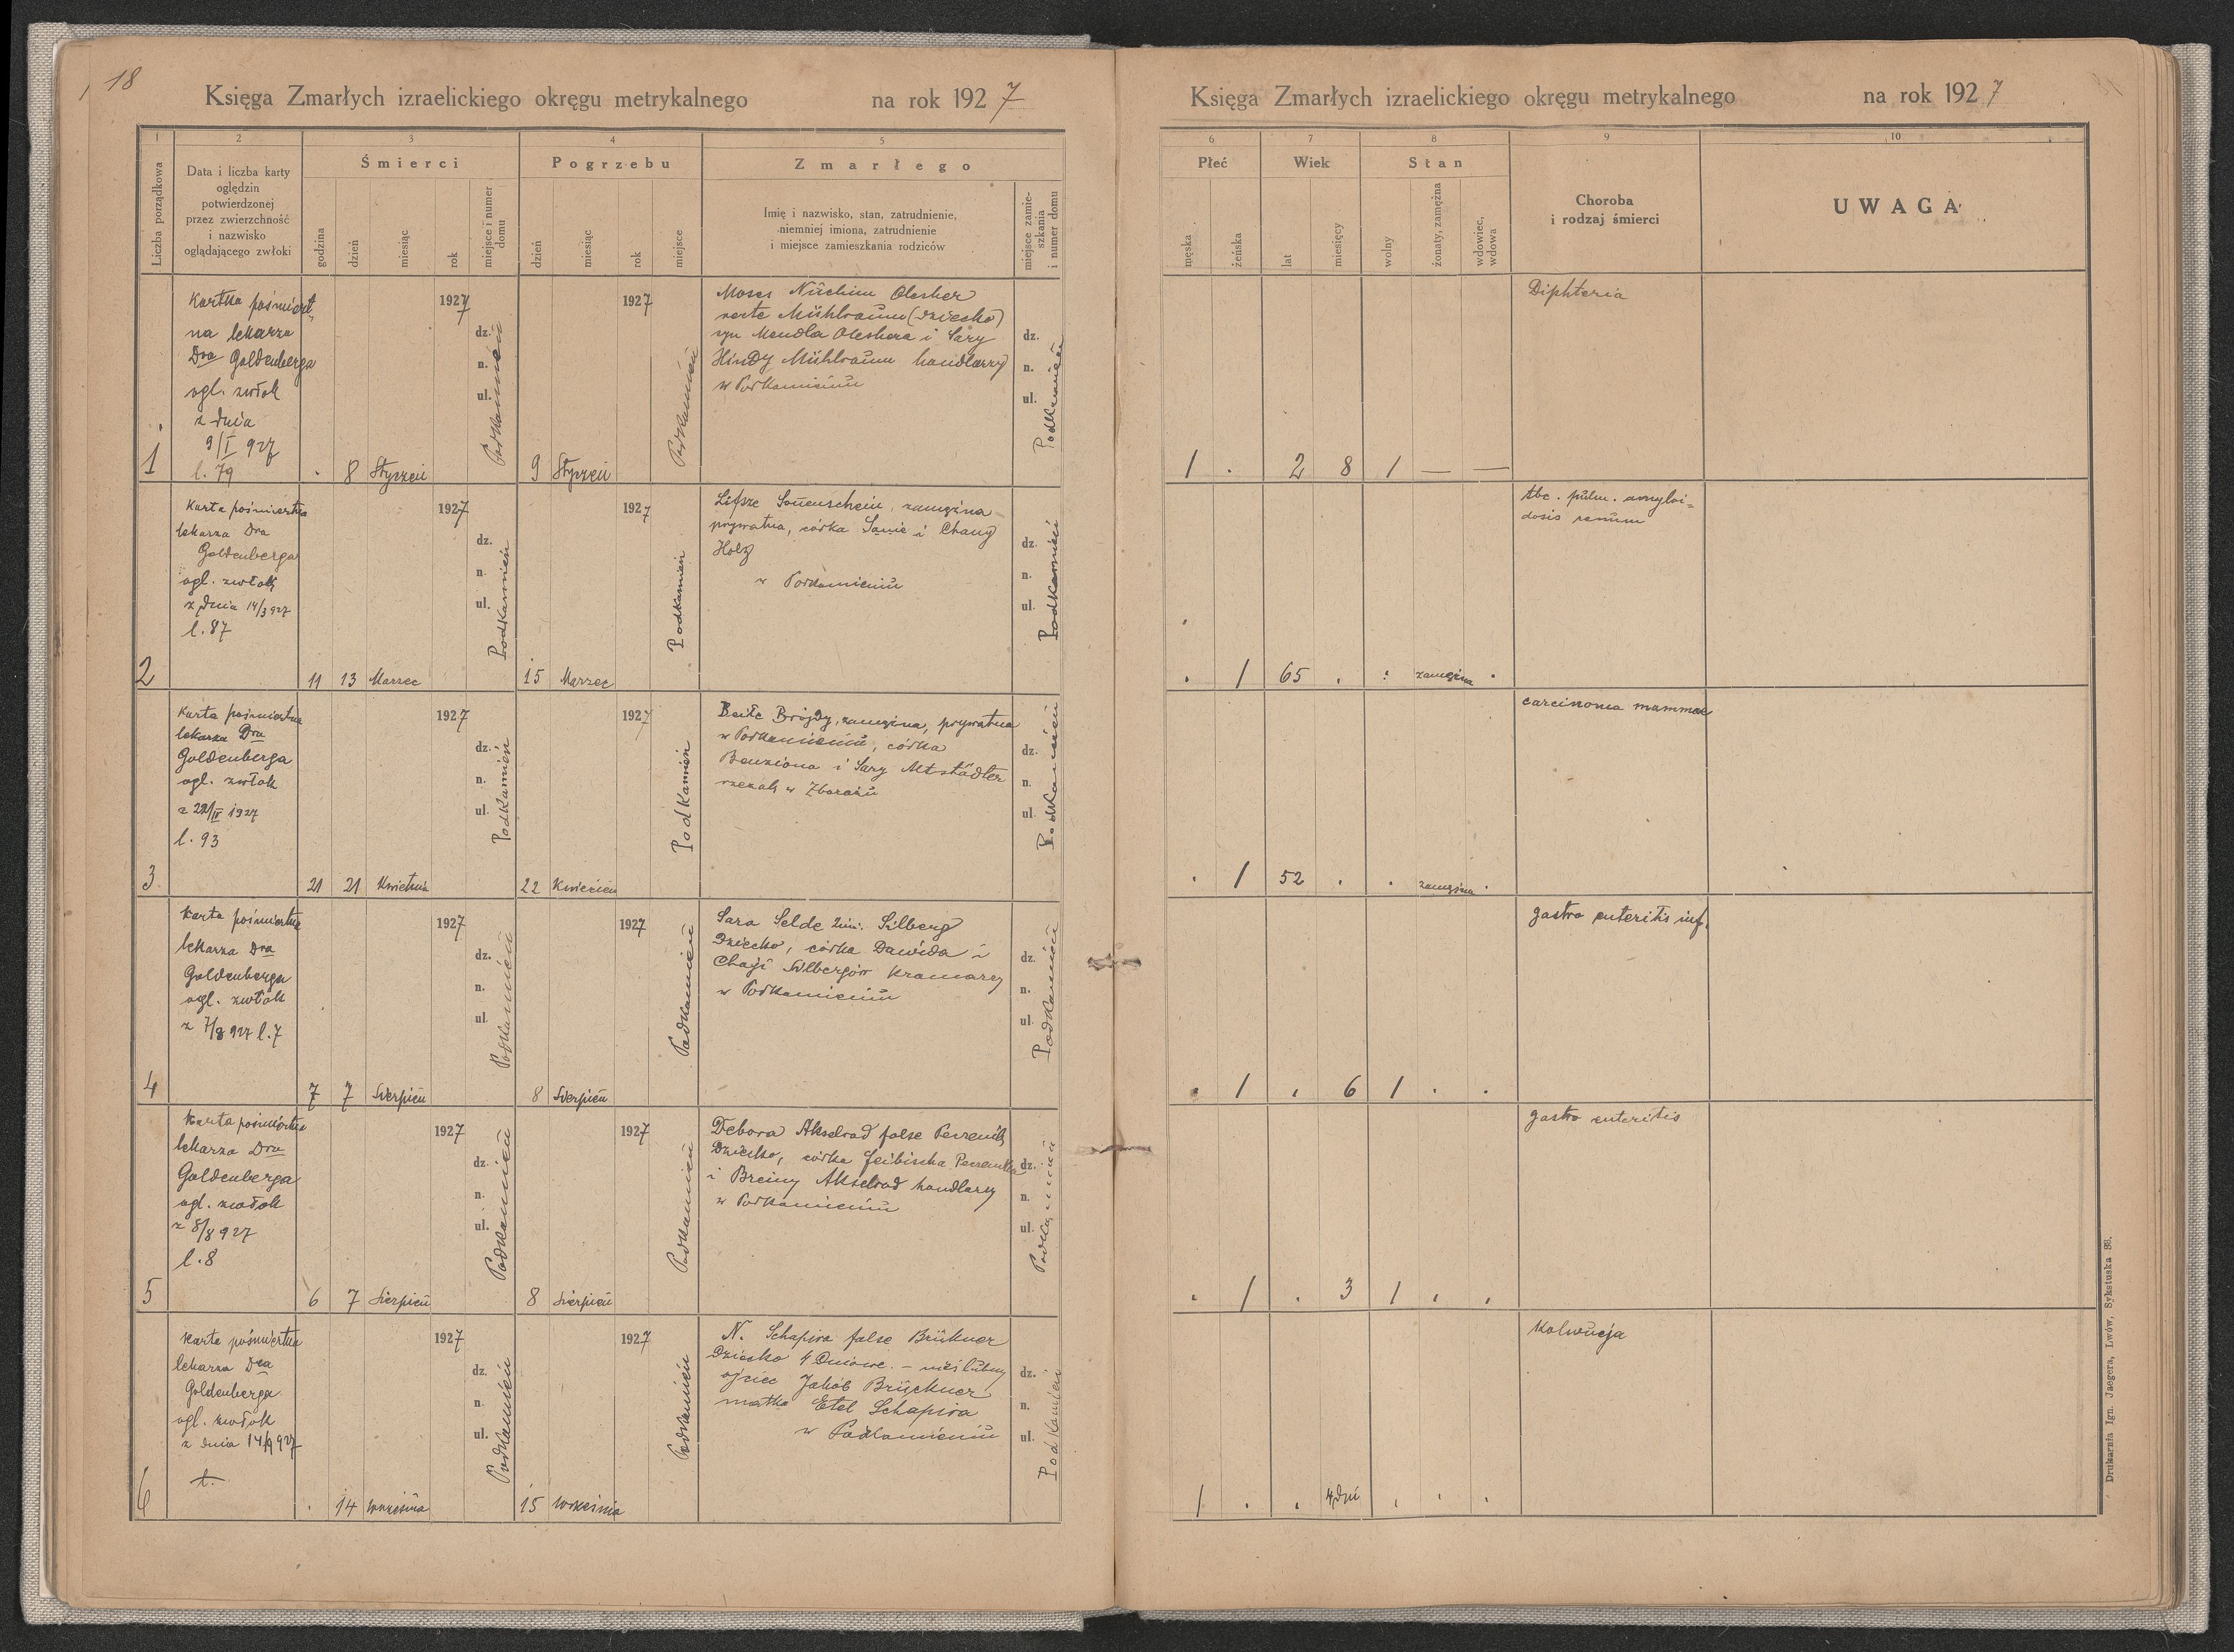 18
Księga Zmarłych izraelickiego okręgu metrykalnego na rok 1927
1 2 3 4 5
Liczba porządkowa
Data i liczba karty
oględzin
potwierdzonej
przez zwierzchność
i nazwisko
oglądającego zwłoki
Śmierci
godzina
dzień
miesiąc
rok
miejsce i numer
domu
Pogrzebu
dzień
miesiąc
rok
miejsce
Zmarłego
Imię i nazwisko, stan, zatrudnienie,
niemniej imiona, zatrudnienie
i miejsce zamieszkania rodziców
miejsce zamie-
szkania
i numer domu
1
Kartka pośmiert
na lekarza
Dra Goldenberga
ogl. zwłok
z dnia
9/I 927
l. 79
8 Styczeń 1927
dz.
n.
ul.
Podkamień
9 Styczeń 1927
Podkamień
Moses Nuchim Olesher
verte Mühlraum (dziecko)
syn Mendla Oleshera i Sary
Hindy Mühlraum handlarzy
w Podkamieniu
dz.
n.
ul.
Podkamień
2
Karta pośmiertna
lekarza Dra
Goldenberga
ogl. zwłok
z dnia 14/3 927
l. 87
11 13 Marzec 1927
dz.
n.
ul.
Podkamień
15 Marzec 1927
Podkamień
Lifsze Sonenschein, zamężna
prywatna, córka Sanie i Chany
Holz
w Podkamieniu
dz.
n.
ul.
Podkamień
3
Karta pośmiertna
lekarza Dra
Goldenberga
ogl. zwłok
z 22/IV 1927
l. 93
21 21 Kwietnia 1927
dz.
n.
ul.
Podkamień
22 Kwiecień 1927
Podkamień
Beile Brojdy, zamężna, prywatna
w Podkamieniu, córka
Benziona i Sary Altstädter
rzezak w Zbarażu
dz.
n.
ul.
Podkamień
4
Karta pośmiertna
lekarza Dra
Goldenberga
ogl. zwłok
z 7/8 927 l. 7
7 7 Sierpień 1927
dz.
n.
ul.
Podkamień
8 Sierpień 1927
Podkamień
Sara Selde 2im. Silberg
Dziecko, córka Dawida i
Chaji Silbergów kramarzy
w Podkamieniu
dz.
n.
ul.
Podkamień
5
Karta pośmiertna
lekarza Dra
Goldenberga
ogl. zwłok
z 8/8 927
l. 8
6 7 Sierpień 1927
dz.
n.
ul.
Podkamień
8 Sierpień 1927
Podkamień
Debora Akselrad false
Dziecko, córka Feibischa
i Breiny Akselrad handlarzy
w Podkamieniu
dz.
n.
ul.
Podkamień
6
Karta pośmiertna
lekarza Dra
Goldenberga
ogl. zwłok
z dnia 14/9 927
14 września 1927
dz.
n.
ul.
Podkamień
15 września 1927
Podkamień
N. Schapira false Brükner
Dziecko 4 Dniowe. – nieślubny
ojciec Jakób Brückner
matka Etel Schapira
w Podkamieniu
dz.
n.
ul.
Podkamień
Księga Zmarłych izraelickiego okręgu metrykalnego na rok 1927
6 7 8 9 10
Płeć
męska
żeńska
Wiek
lat
miesięcy
Stan
wolny
żonaty, zamężna
wdowiec,
wdowa
Choroba
i rodzaj śmierci
UWAGA
1 . 2 8 1 — —
Diphteria
. 1 65 . . zamężna .
tbc. pulm. amyloi=
dosis renum
. 1 52 . . zamężna .
carcinoma mammae
. 1 . 6 1 . .
gastro enteritis inf.
. 1 . 3 1 . .
gastro enteritis
1 . . 4 dni . . .
Kolwucja
Drukarnia Ign. Jaegera, Lwów, Sykstuska 33.